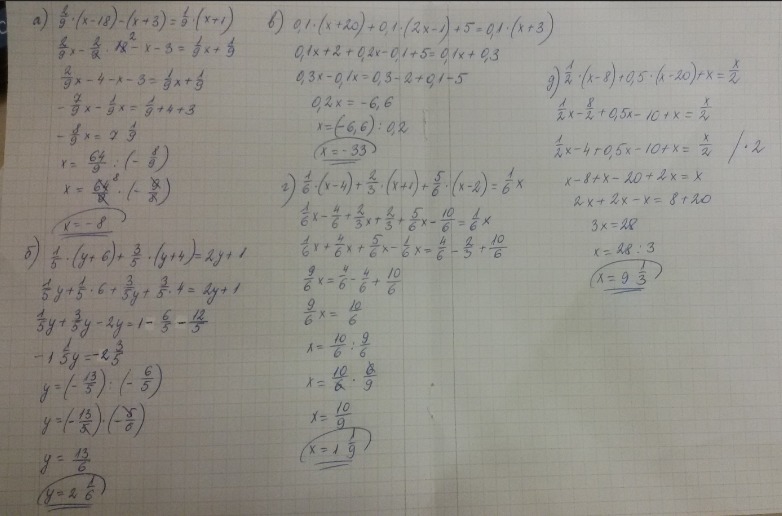 а) 2/9·(x-18)-(x+3)=1/9·(x+1)
2/9x-2/9·18²-x-3=1/9x+1/9
2/9x-4-x-3=1/9x+1/9
-7/9x-1/9x=1/9+4+3
-8/9x=7 1/9
x=64/9:(-8/9)
x=64⁸/9·(-9/8)
x=-8
б) 1/5·(y+6)+3/5·(y+4)=2y+1
1/5y+1/5·6+3/5y+3/5·4=2y+1
1/5y+3/5y-2y=1-6/5-12/5
-1 1/5y=-2 3/5
y=(-13/5):(-6/5)
y=(-13/5)·(-5/6)
y=13/6
y=2 1/6
в) 0,1·(x+20)+0,1·(2x-1)+5=0,1·(x+3)
0,1x+2+0,2x-0,1+5=0,1x+0,3
0,3x-0,1x=0,3-2+0,1-5
0,2x=-6,6
x=(-6,6):0,2
x=-33
г) 1/6·(x-4)+2/3·(x+1)+5/6·(x-2)=1/6x
1/6x-4/6+2/3x+2/3+5/6x-10/6=1/6x
1/6x+4/6x+5/6x-1/6x=4/6-2/3+10/6
9/6x=4/6-4/6+10/6
9/6x=10/6
x=10/6:9/6
x=10/6·6/9
x=10/9
x=1 1/9
д) 1/2·(x-8)+0,5·(x-20)+x=x/2
1/2x-8/2+0,5x-10+x=x/2
1/2x-4+0,5x-10+x=x/2 /·2
x-8+x-20+2x=x
2x+2x-x=8+20
3x=28
x=28:3
x=9 1/3